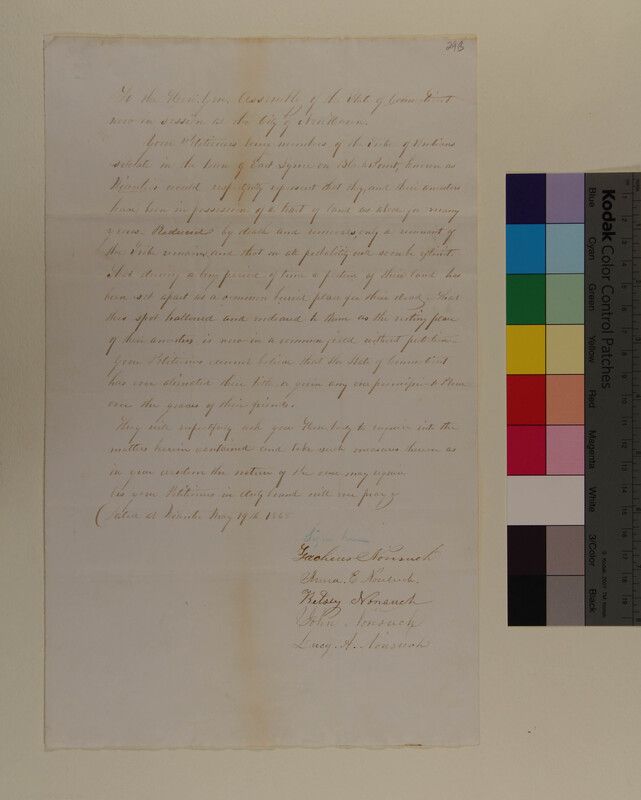 293
To the Hon. Gen. Assembly of the State of Connecticut
now in session at the City of New Haven.
Your Petitioners being members of the Tribe of
in the town of East Lyme on Black Point, known as
Niantic, would respectfully represent that they and their ancestors
have been in possession of a tract of land as above for many
years. Reduced by death and removals, only a remnant of
the Tribe remains, and that in all probability will soon be extinct.
That during a long period of time a portion of their land has
been set apart as a common burial place for their dead, That
this spot hallowed and endeared to them as the resting place
of their ancestors is now in a common field without protection
Your Petitioners cannot believe that the State of Connecticut
has ever alienated their title or given any one permission to
over the graves of their friends.
They will respectfully ask your Honorbody to enquire into the
matters herein contained and take such measures thereon as
in your wisdom the nature of the case may require
As your Petitioners in duty bound will ever pray
Dated at Niantic May 19th
Sign here
Zacheus Nonsuch
E Nonsuch
Kelsey Nonsuch
John Nonsuch
Lucy. A. Nonsuch
Kodak Color Control Patches
Blue
Cyan
Green
Yellow
Red
Magenta
White
3/Color
Black